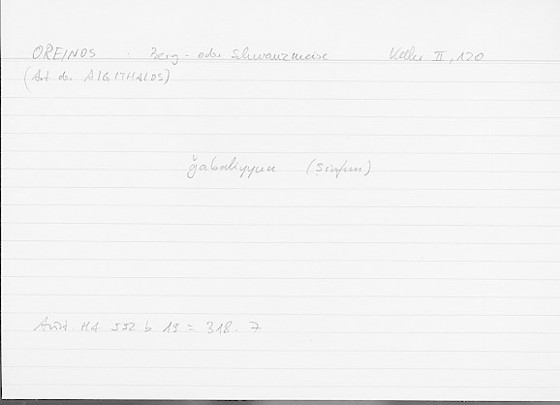 OREINOS : Berg- oder Schwanzmeise Keller II, 120
(Art des AIGITHALOS)
ǧabaliyyun (ṣinfun)
Arist. HA 592 b 19 = 318. 7